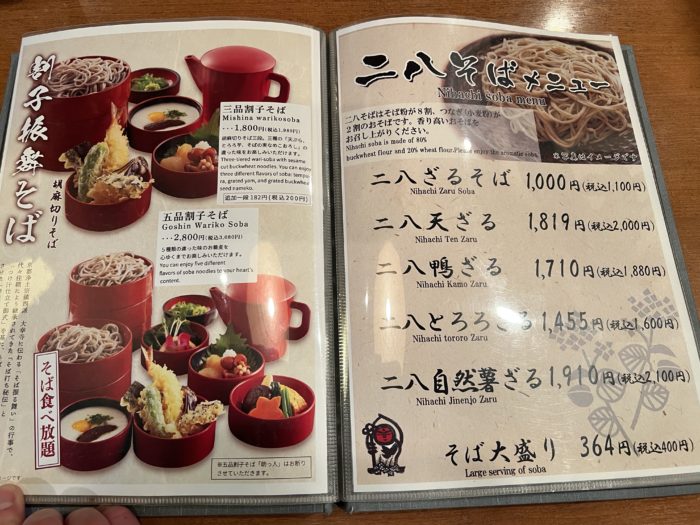 割子振舞そば
胡麻切りそば
三品割子そば
Mishina warikosoba
・・・1,800円(税込1,983円)
胡麻切りそば三段。三種の「天ぷら、
とろろ芋、そばの実なめこおろし」の
違った味をお楽しみいただけます。
Three-siered wari-soba with sesame
cut buckwheat noodles. You can enjoy
three different flavors of soba: tem
ra, grated yam, and grated buckwheat
seed nameko.
追加一段 182円(税込200円)
五品割子そば
Goshin Wariko Soba
・・・2,800円(税込3,080円)
5種類の違った味のお蕎麦を
心ゆくまでお楽しみいただけます。
You can enjoy five different
flavors of soba noodles to your heart's
content.
そば食べ放題
※五品割子そば「助っ人」はお断り
させていただきます。
二八そばメニュー
Nihachi soba menu
二八そばはそば粉が8割、つなぎ(小麦粉)が
2割のおそばです。香り高いおそばを
お召し上がりください。
Nihachi soba is made of 80%
buckwheat flour and 20% wheat flour.Please enjoy the aromatic soba.
※写真はイメージです
二八ざるそば 1,000円(税込1,100円)
Nihachi Zaru Soba
二八天ざる 1,819円(税込2,000円)
Nihachi Ten Zaru
二八鴨ざる 1,710円(税込1,880円)
Nihachi Kamo Zaru
二八とろろざる 1,455円(税込1,600円)
Nihachi tororo Zaru
二八自然薯ざる 1,910円(税込2,100円)
Nihachi Jinenjo Zaru
そば大盛り 364円(税込400円)
Large serving of soba